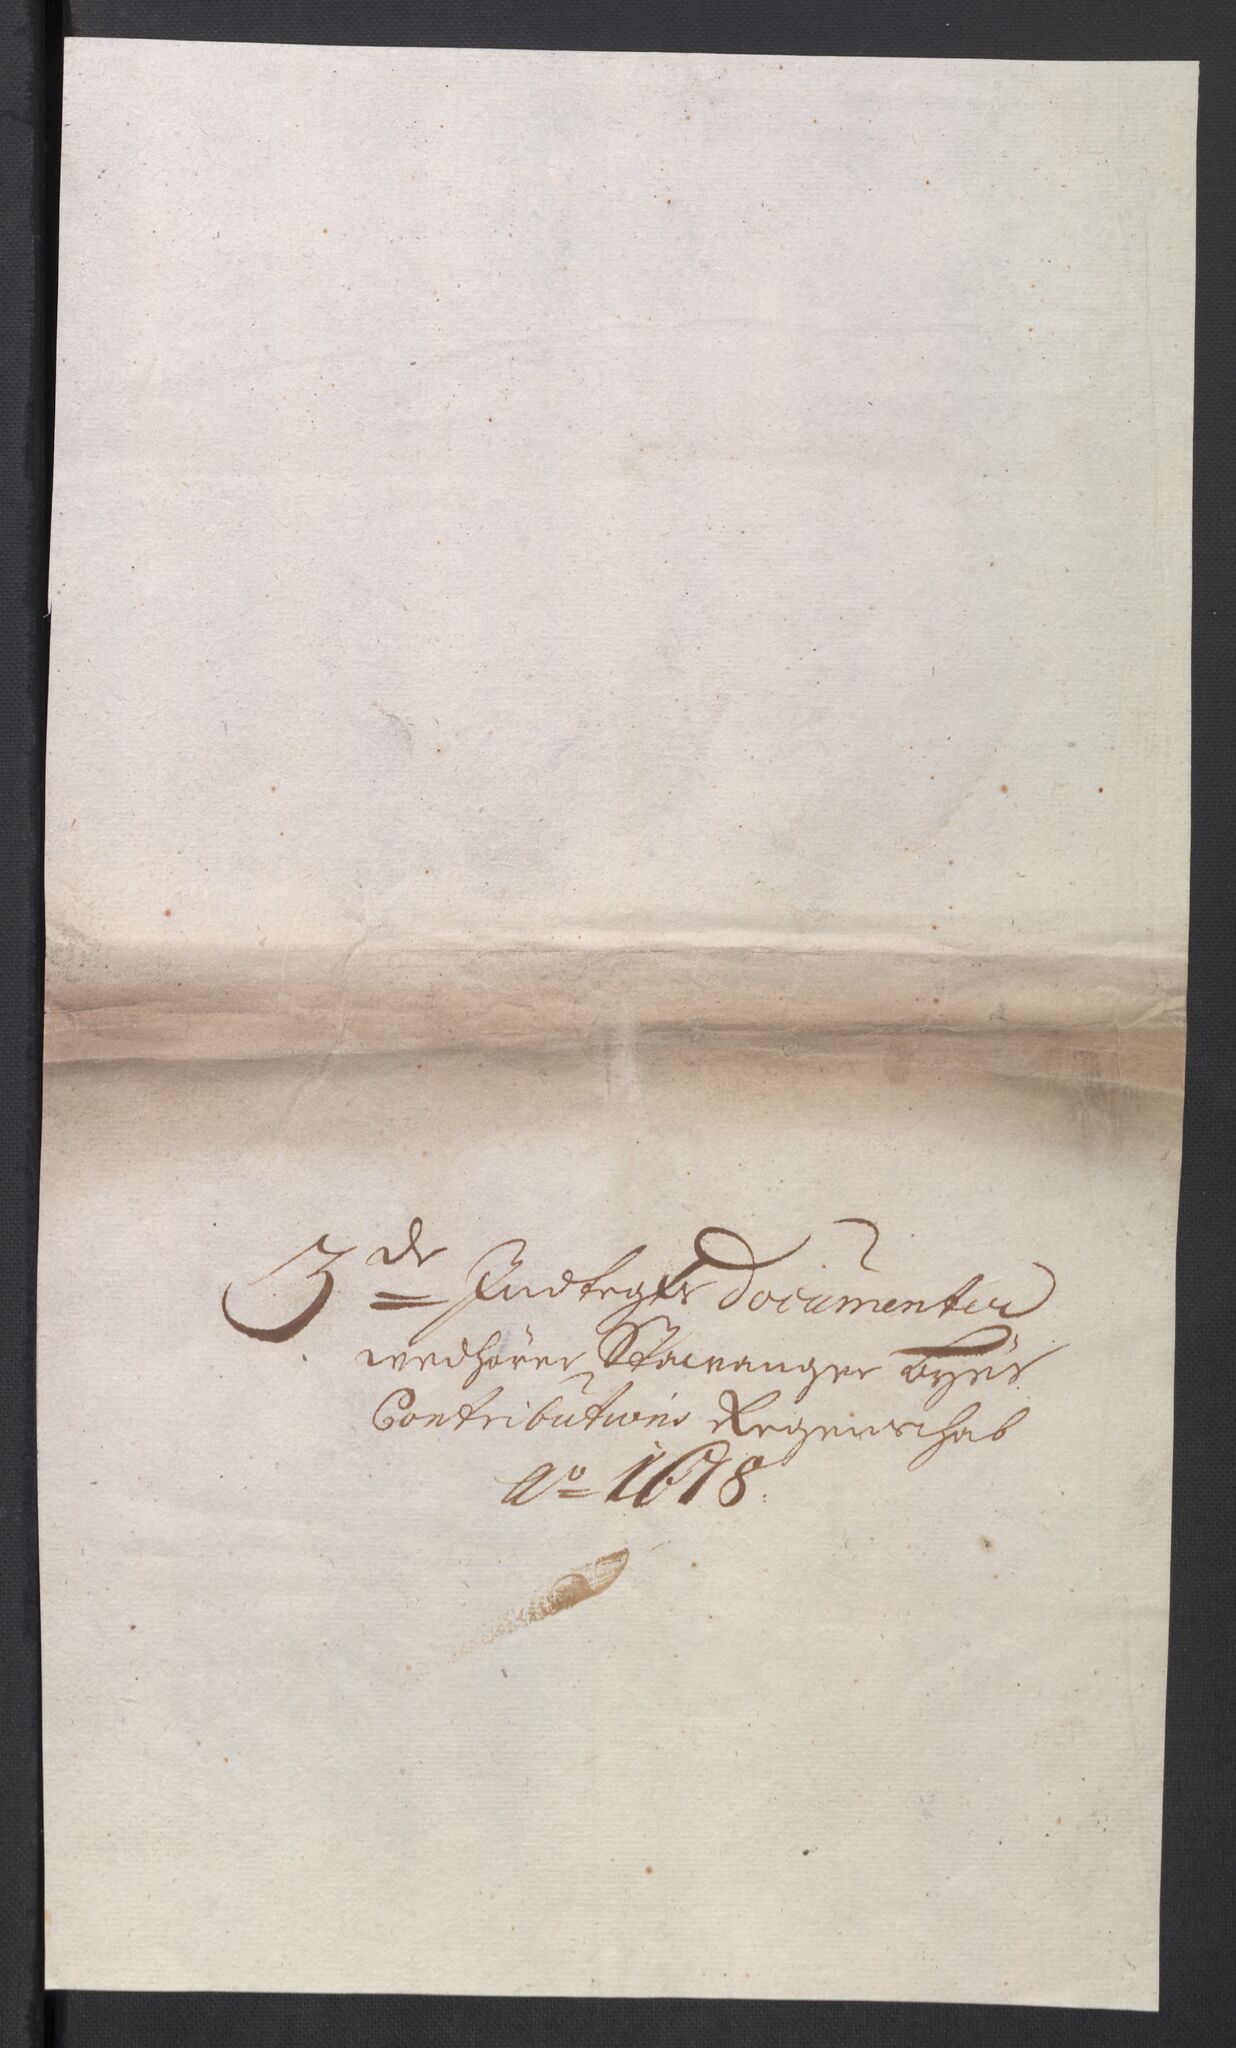 3de Indtegts Documenter
vedhörer Stavanger byes
Contributions Regenschab
Ao 1678.